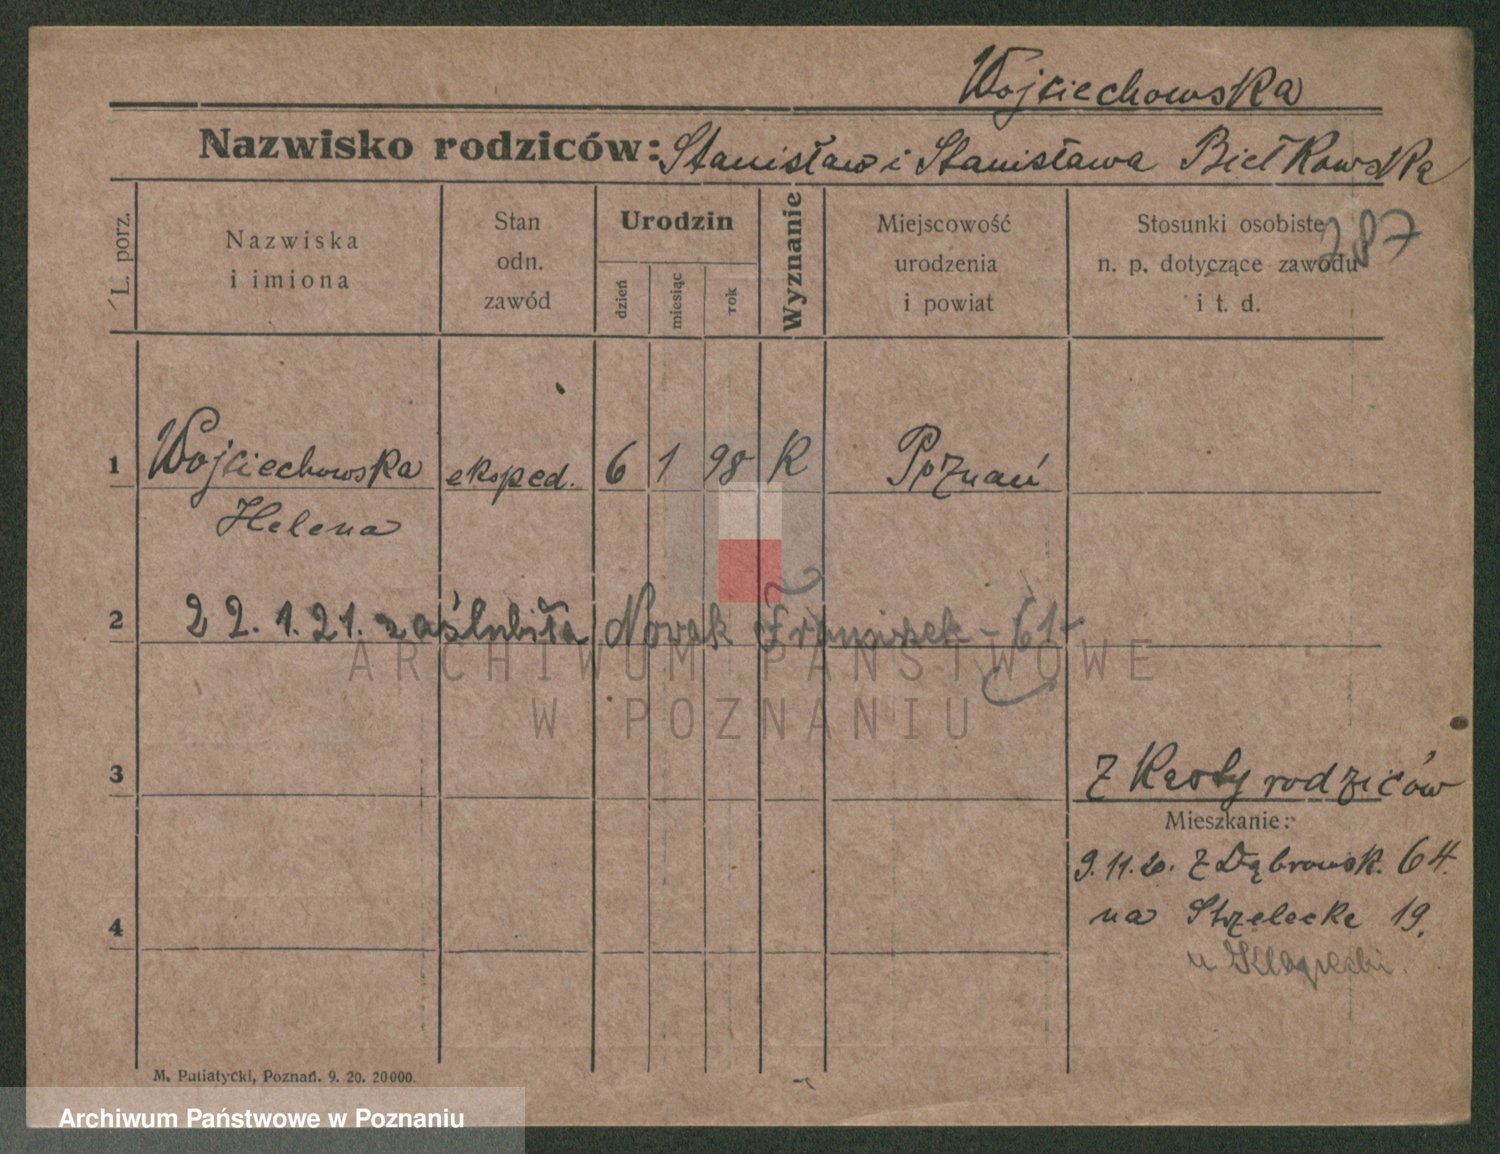 Wojciechowska
Nazwisko rodziców: Stanisław i Stanisława Bietkowska
287
L. porz.
Nazwiska
i imiona
Stan
odn.
zawód
Urodzin
dzień
miesiąc
rok
Wyznanie
Miejscowość
urodzenia
i powiat
Stosunki osobiste
n. p. dotyczące zawodu
i t. d.
1 Wojciechowska eksped. 6 1 98 K Poznań
Helena
2 22.1.21. zaślubiła Nowak Franciszek
3 z Karty rodziców
Mieszkanie:
9.11.20. z Dąbrowsk. 64.
na Strzelecke 19.
4
u
M. Putiatycki, Poznań. 9. 20. 20000.
ARCHIWUM PAŃSTWOWE
W POZNANIU
Archiwum Państwowe w Poznaniu